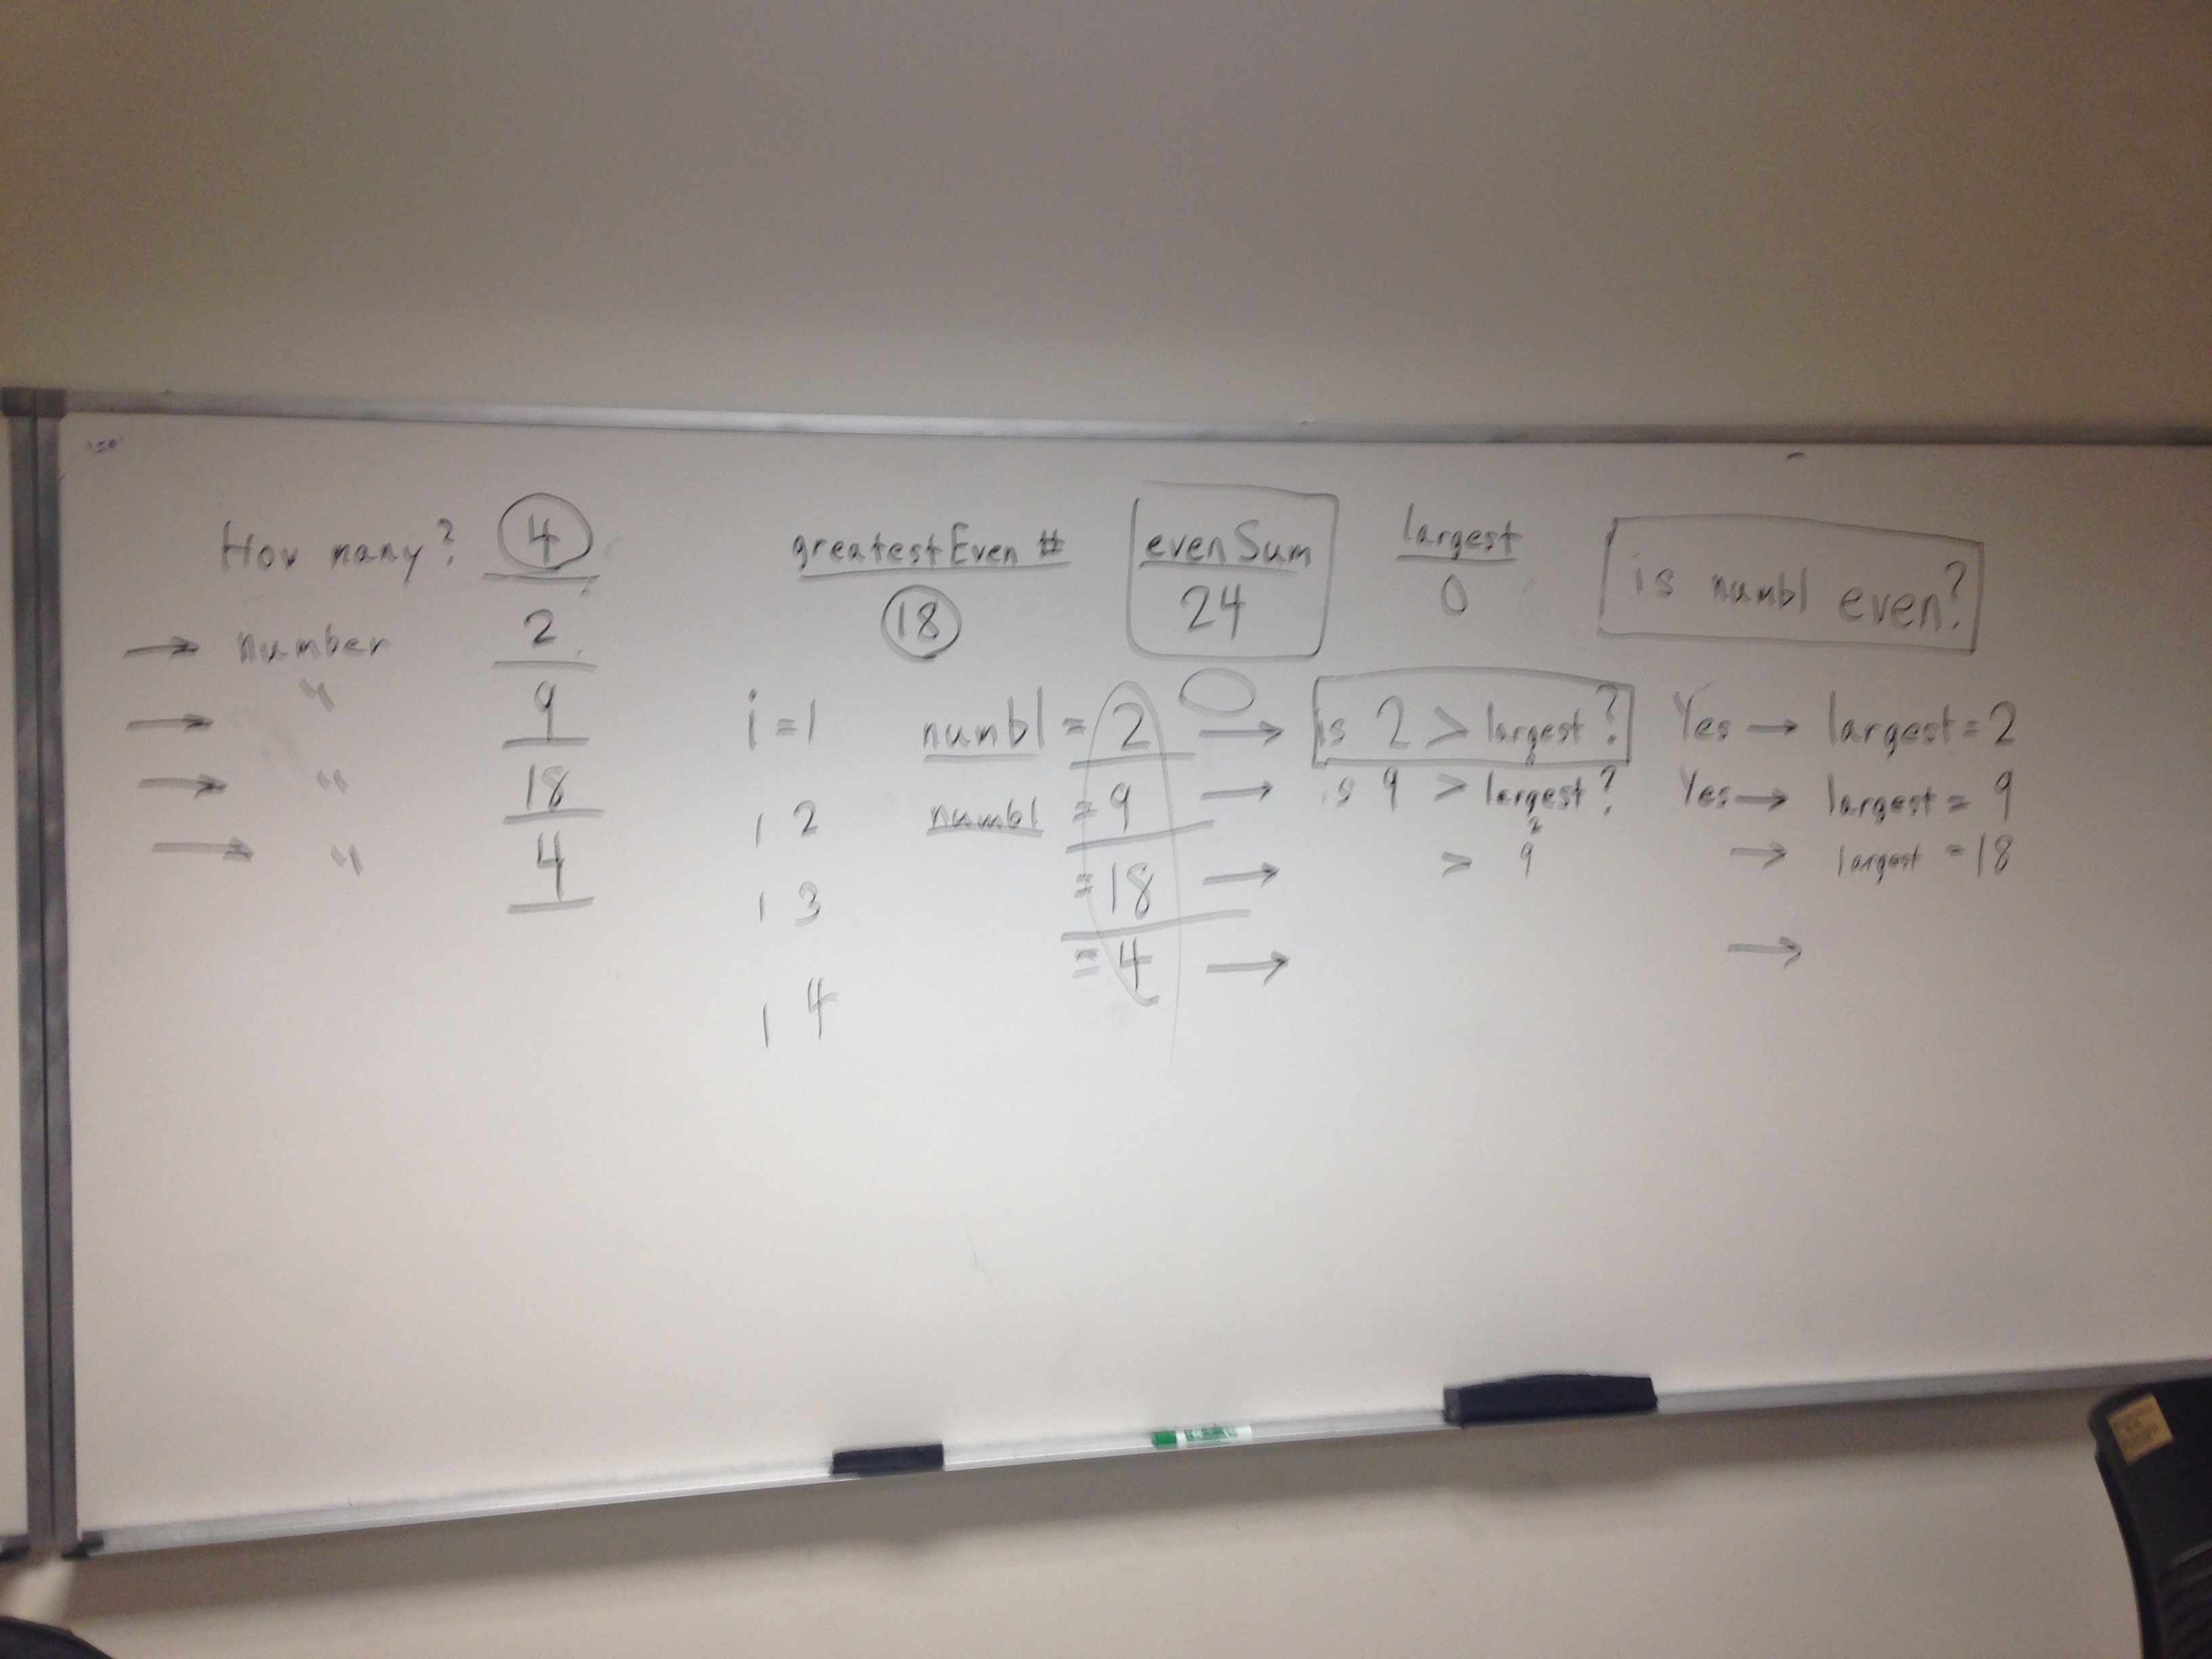 How many? 4
number 2
" 9
" 18
" 4
greatestEven # evenSum largest
18 24 0
is numbl even?
i = 1 numbl = 2 → is 2 > largest? Yes → largest = 2
0
i 2 numbl = 9 → is 9 > largest? Yes → largest = 9
2
i 3 = 18 → > 9 → largest = 18
i 4 = 4 → →